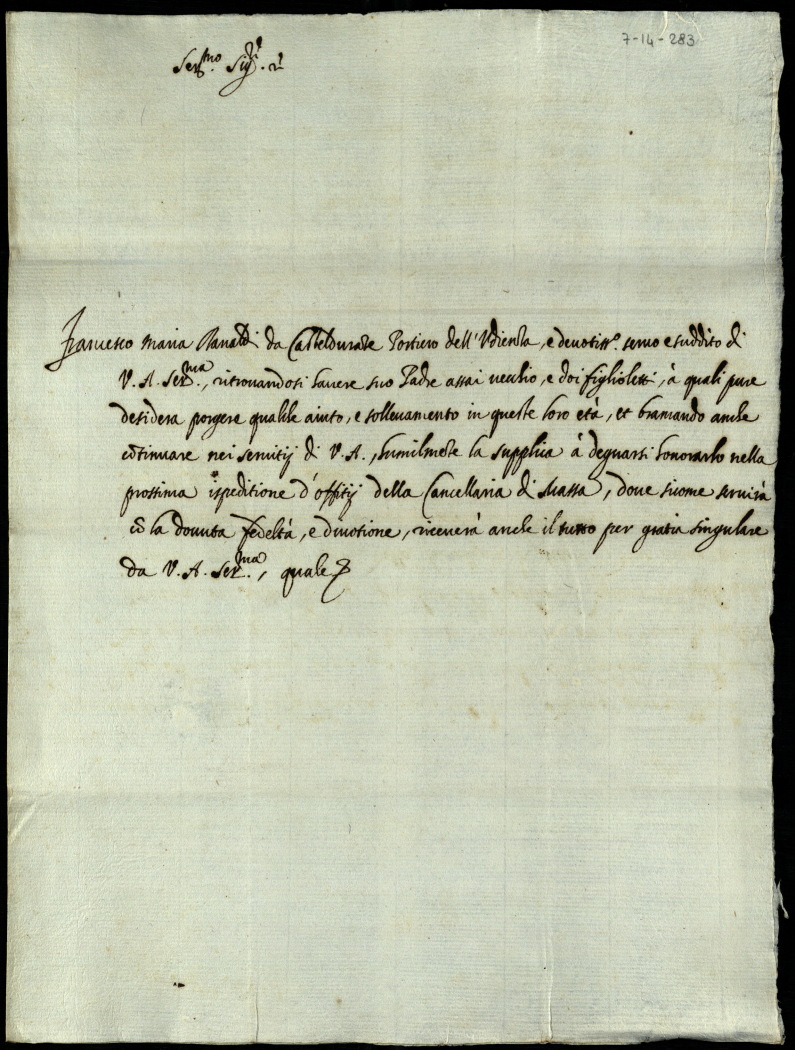 7-14-283
Ser.mo Sig.r
Francesco Maria Ranaldi da Casteldurate Portiero dell'Udienza, e devotiss.o servo e suddito di
V. A. Ser.ma, ritrovandosi havere suo Padre assai vecchio, e doi figlioletti, à quali pure
desidera porgere qualche aiuto, e sollevamento in queste loro età, et bramando anche
cōtinuare nei servitij di V. A., humilmēte la supplica à degnarsi honorarlo nella
prossima ispeditione d'offitij della Cancellaria di Massa, dove sicome servirà
cō la dovuta fedeltà, e divotione, riceverà anche il tutto per gratia singulare
da V. A. Ser.ma, quale